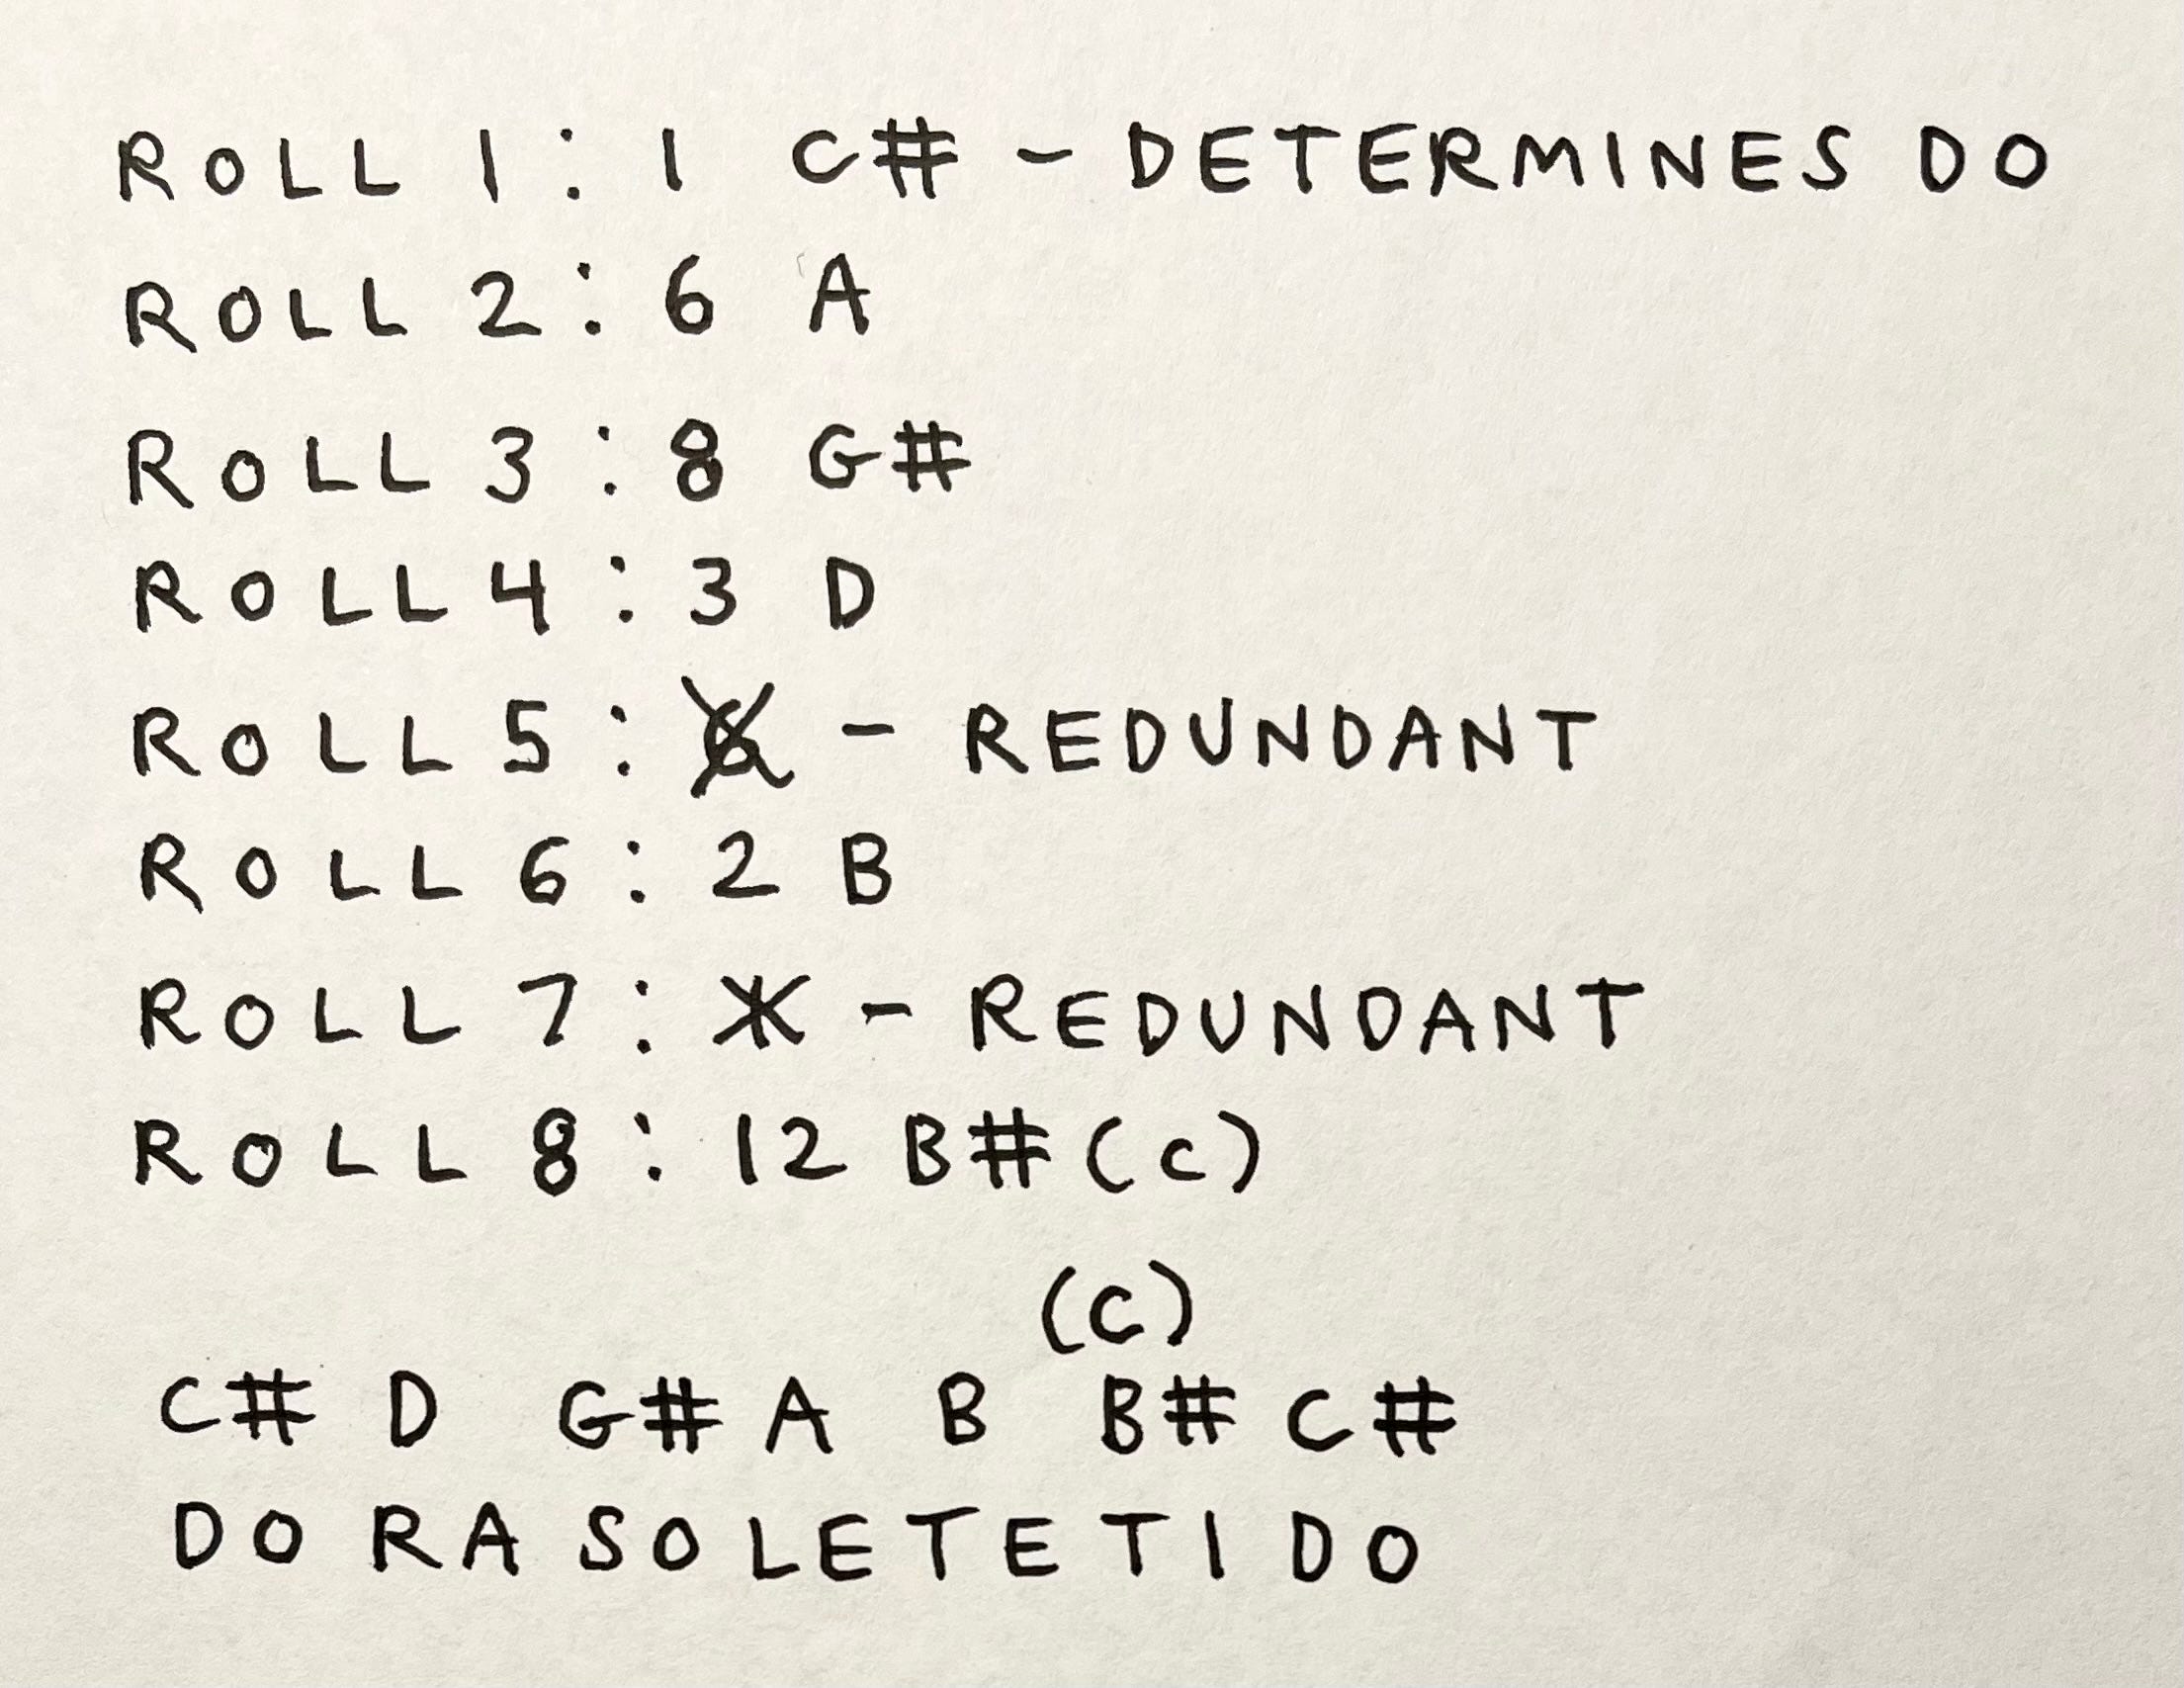 ROLL 1: 1 C# - DETERMINES DO
ROLL 2: 6 A
ROLL 3: 8 G#
ROLL 4: 3 D
ROLL 5: - REDUNDANT
ROLL 6: 2 B
ROLL 7: - REDUNDANT
ROLL 8: 12 B# (C)
(C)
C# D G# A B B# C#
DO RA SO LE TE TI DO